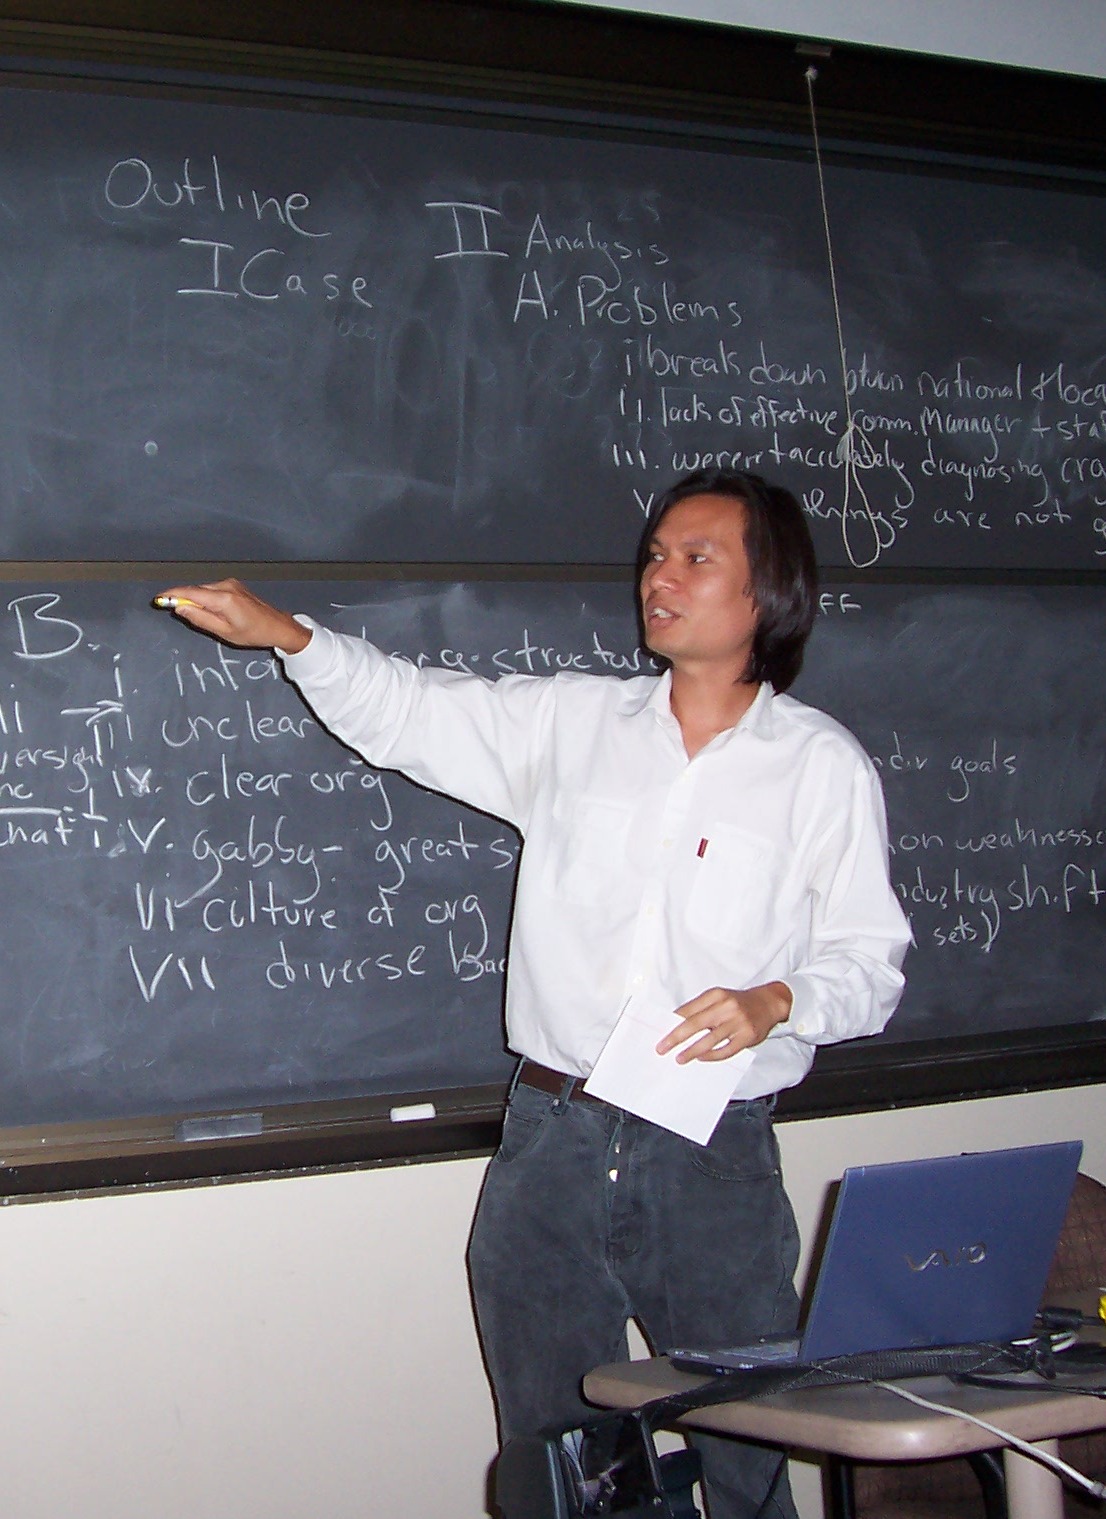 Outline
I Case
II Analysis
A. Problems
i break down btwn national & loca
ii. lack of effective comm. Manager + sta
iii. weren't accurately diagnosing
things are not
FF
B.
i. org. structur
iii unclear
iv. clear org
v. gabby - great s
vi culture of org
vii diverse bac
goals
on weaknesse
ndustry shift
sets)
VAIO